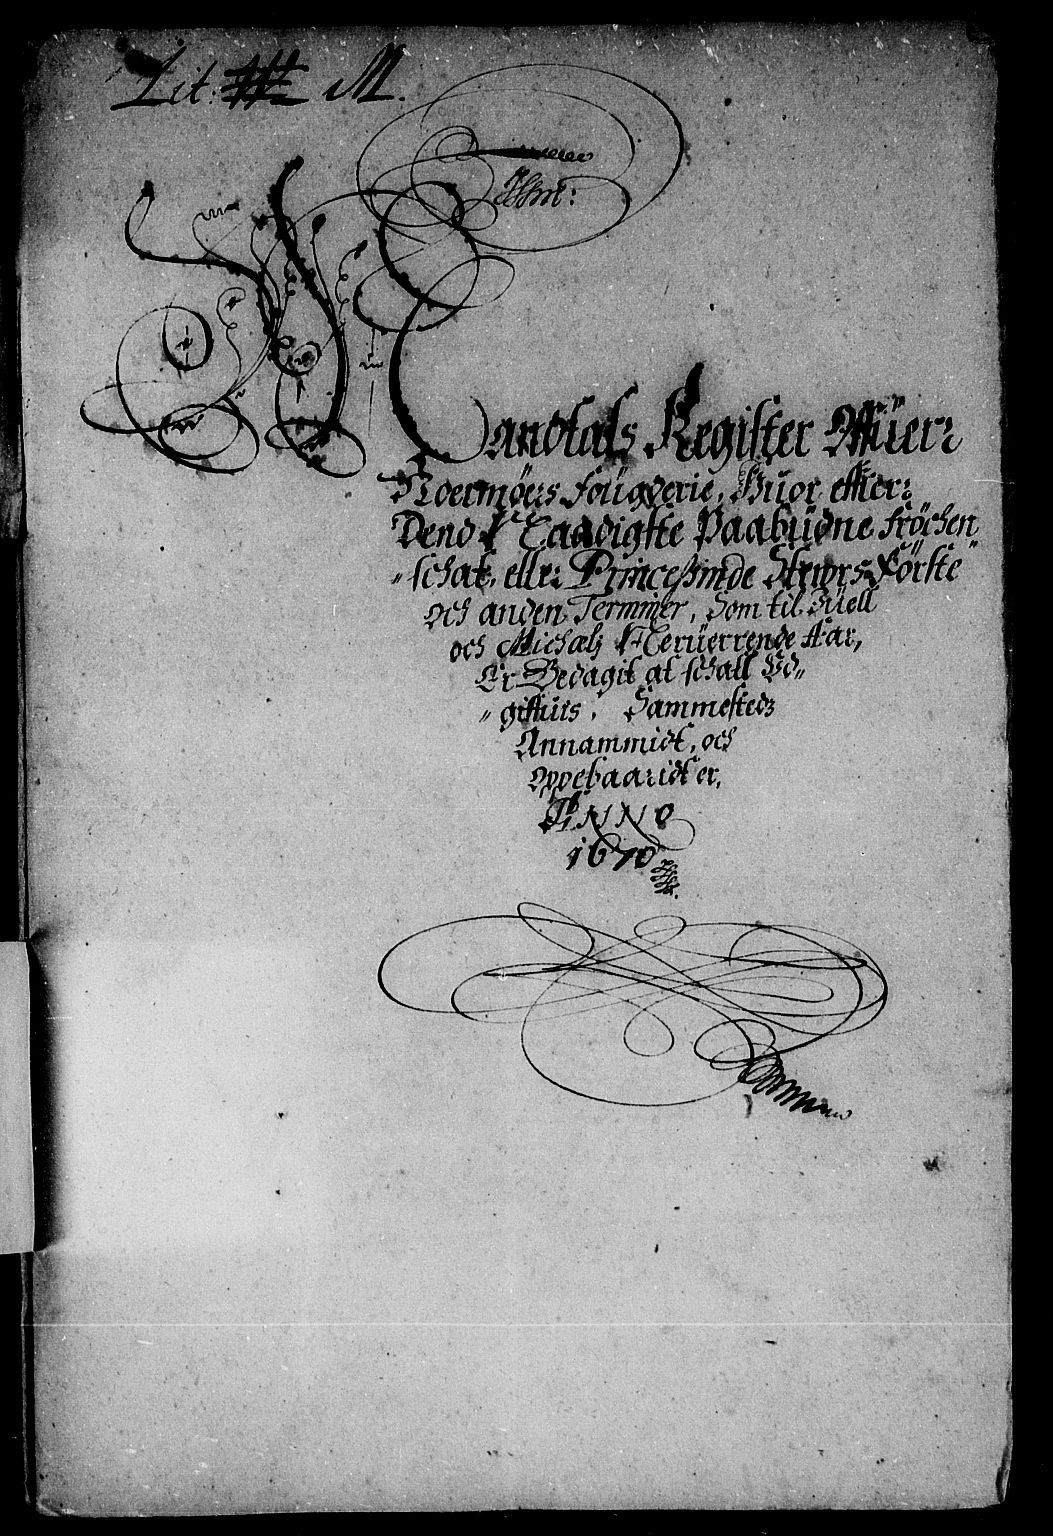 Lit: M.
Mandtals Register Offuer:
Noermøers fougderie, Huor effter:
Dend Naadigste Paabudne Frøchen
schat, eller Princessinde Stiyrs Förste
och anden Terminer, Som til Juell
och Michaelj Neruerrende Aar,
Er Bedagit at schall Vd„
„ giffuis, Sammesteds
Annammidt, och
Oppebaaridt er,
ANNO
1670